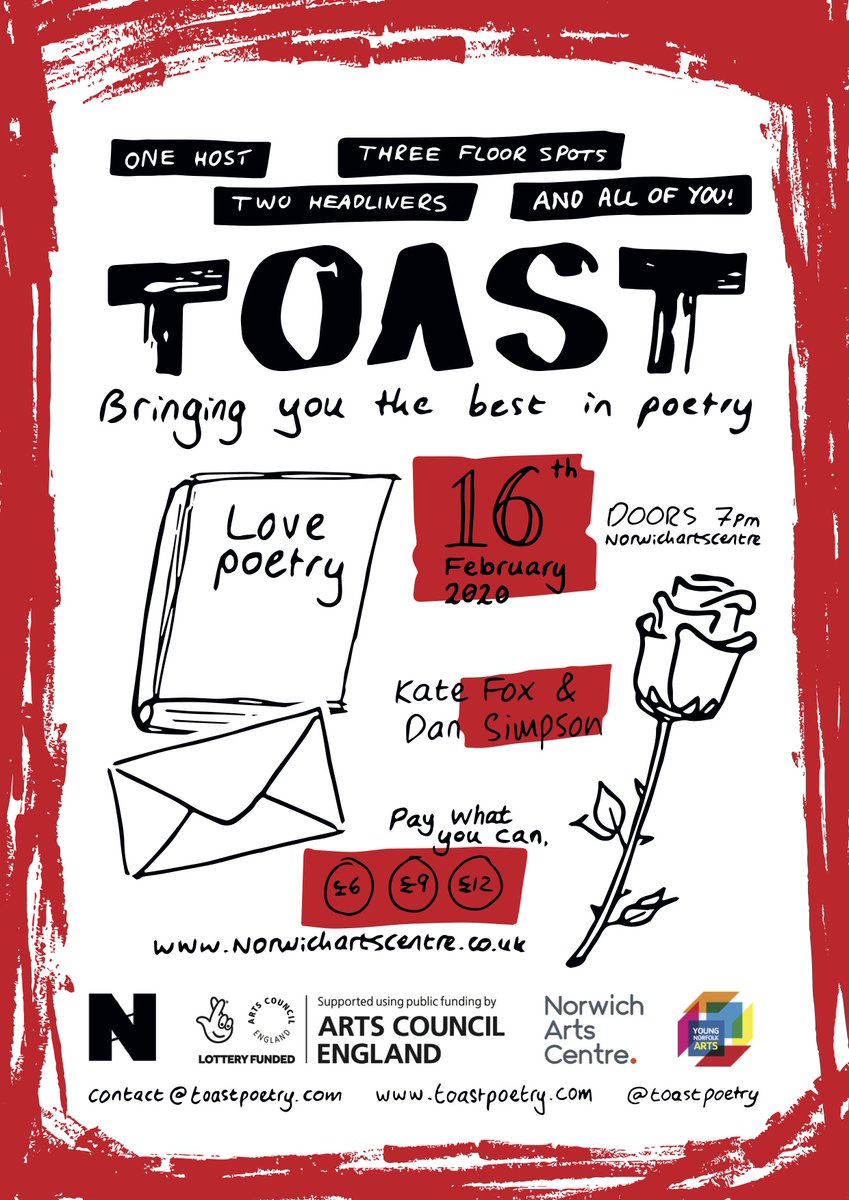 ONE HOST
THREE FLOOR SPOTS
TWO HEADLINERS
AND ALL OF YOU!
TOAST
Bringing you the best in poetry
Love
poetry
16th
February
2020
DOORS 7pm
Norwichartscentre
Kate Fox &
Dan Simpson
Pay what
you can.
£6 £9 £12
www.Norwichartscentre.co.uk
N
LOTTERY FUNDED
ARTS COUNCIL
ENGLAND
Supported using public funding by
ARTS COUNCIL
ENGLAND
Norwich
Arts
Centre.
YOUNG
NORFOLK
ARTS
contact@toastpoetry.com www.toastpoetry.com @toastpoetry